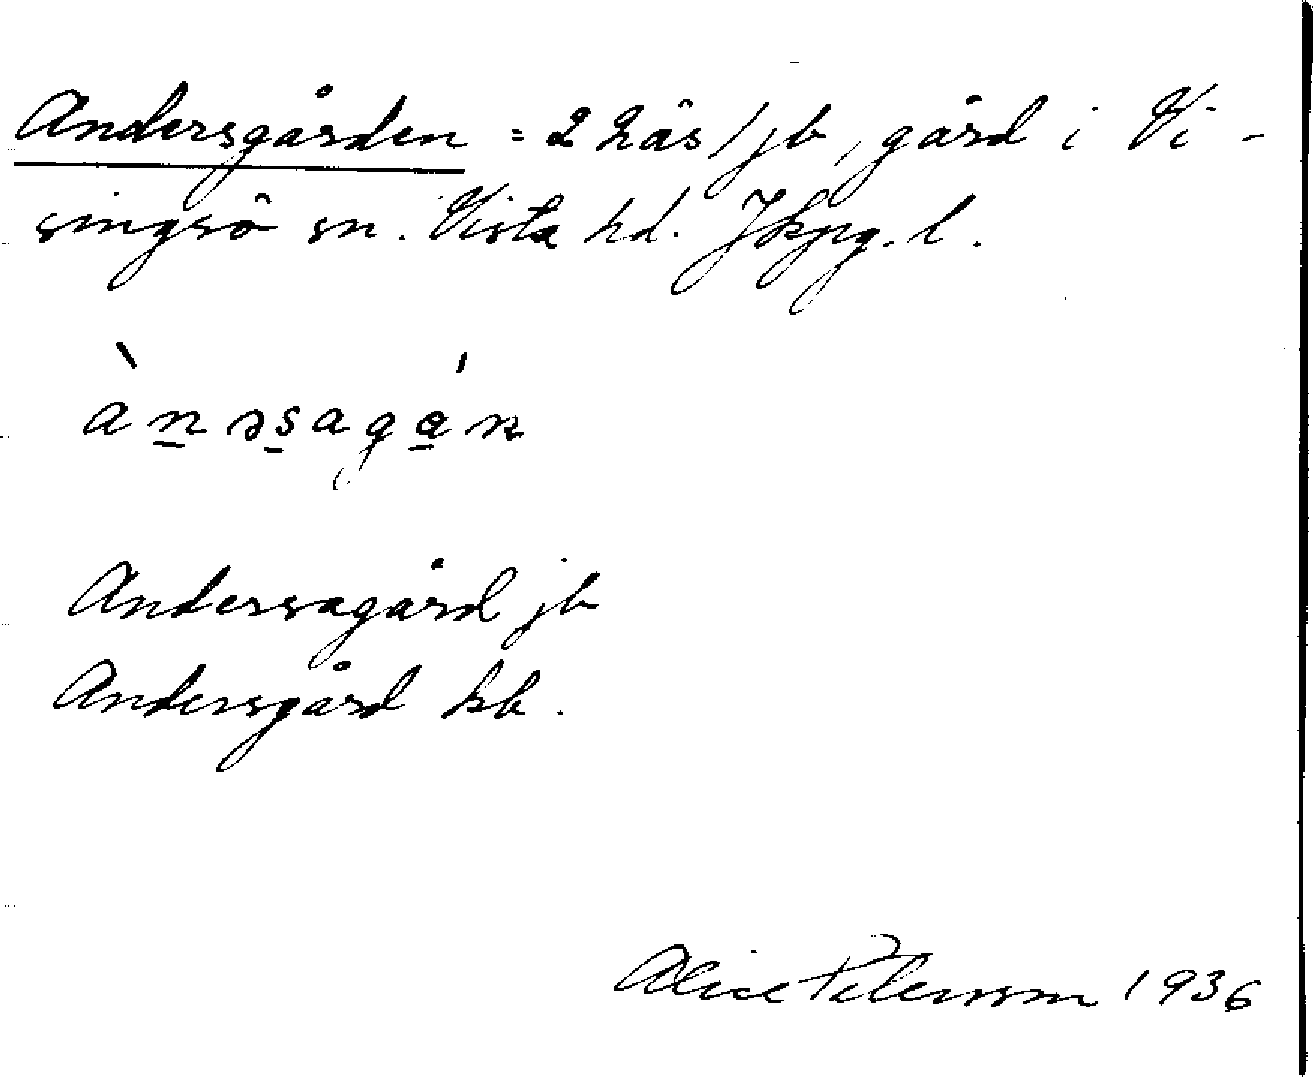 Andersgården = 2 Näs / jb, gård i Vi-
singsö sn. Vista hd. Jkpg. l.
Anderssagård jb
Andersgård kb.
Alice Petersson 1936